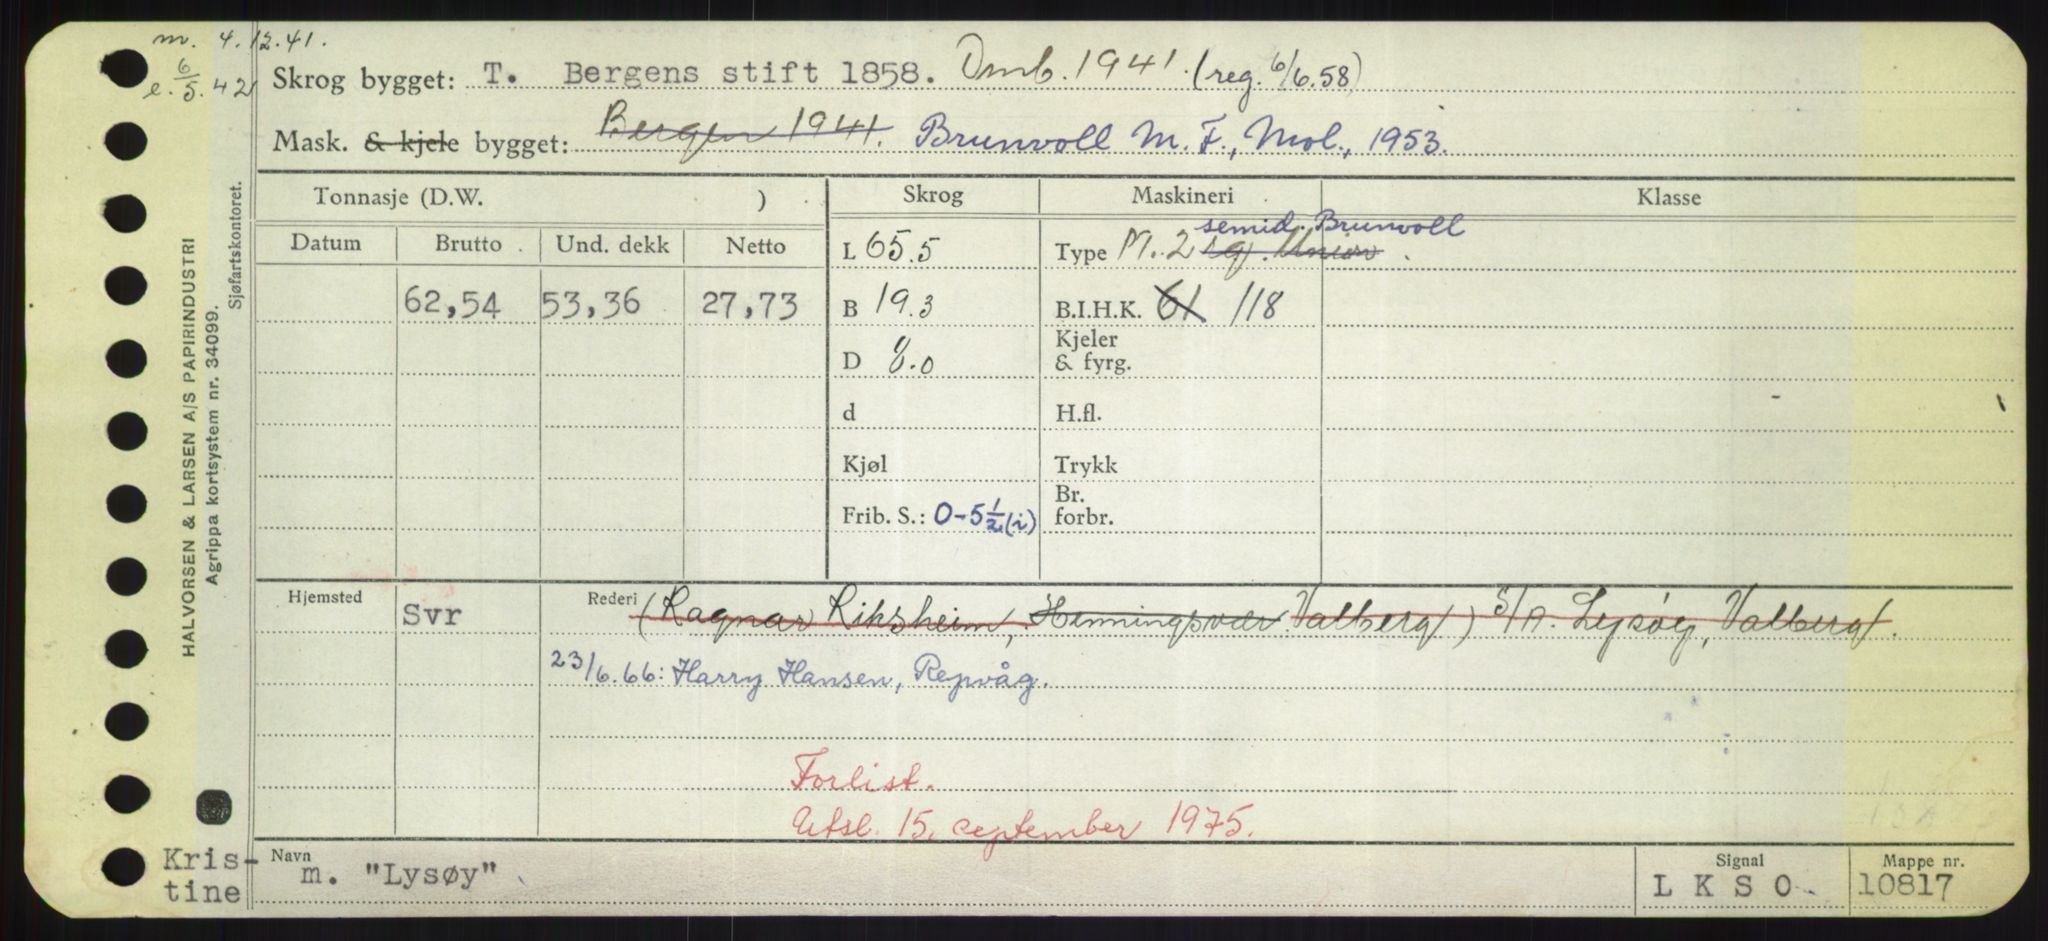 m. 4.12.41.
e. 6/5.42
Skrog bygget: T. Bergens stift 1858. Omb. 1941. (reg. 6/6.58)
Mask. & kjele bygget: Bergen 1941. Brunvoll M. F., Mol., 1953.
Tonnasje (D.W. )
Skrog
Maskineri
Klasse
Datum
Brutto
Und. dekk
Netto
62,54
53,36
27,73
L 65.5
B 19.3
D 8.0
d
Kjøl
Frib. S.: 0-5 1/2 (i)
semid. Brunvoll
Type M. 2 sg. Union.
B.I.H.K. 61 118
Kjeler
& fyrg.
H.fl.
Trykk
Br.
forbr.
Hjemsted
Svr
Rederi
(Ragnar Riksheim, Henningsvær Valberg) S/A. Lysøy, Valberg.
23/6.66: Harry Hansen, Repvåg.
Forlist.
Utsl. 15. september 1975.
Kris-
tine
Navn
m. "Lysøy"
Signal
L K S O
Mappe nr.
10817
HALVORSEN & LARSEN A/S PAPIRINDUSTRI
Agrippa kortsystem nr. 34099.
Sjøfartskontoret.